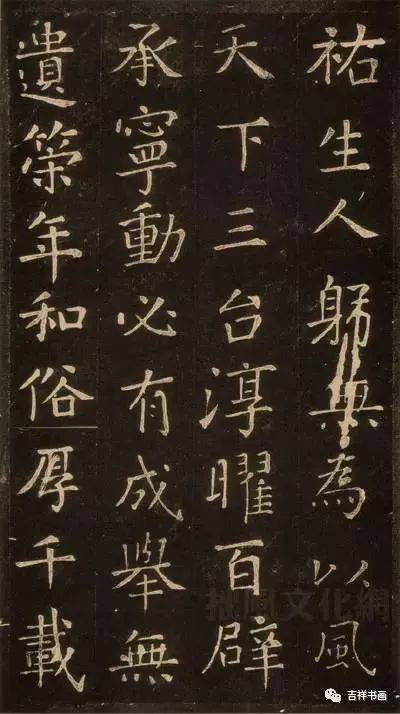 祐生人躬無為以風
天下三台淳曜百辟
承寧動必有成舉無
遺策年和俗厚千載
拙風文化網
吉祥书画